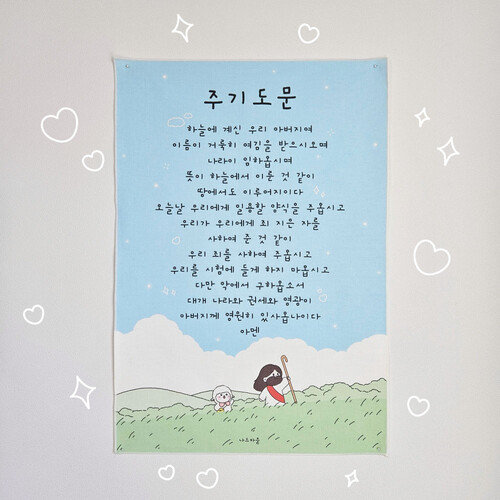 주기도문
하늘에 계신 우리 아버지여
이름이 거룩히 여김을 받으시오며
나라이 임하옵시며
뜻이 하늘에서 이룬 것 같이
땅에서도 이루어지이다
오늘날 우리에게 일용할 양식을 주옵시고
우리가 우리에게 죄 지은 자를
사하여 준 것 같이
우리 죄를 사하여 주옵시고
우리를 시험에 들게 하지 마옵시고
다만 악에서 구하옵소서
대개 나라와 권세와 영광이
아버지께 영원히 있사옵나이다
아멘